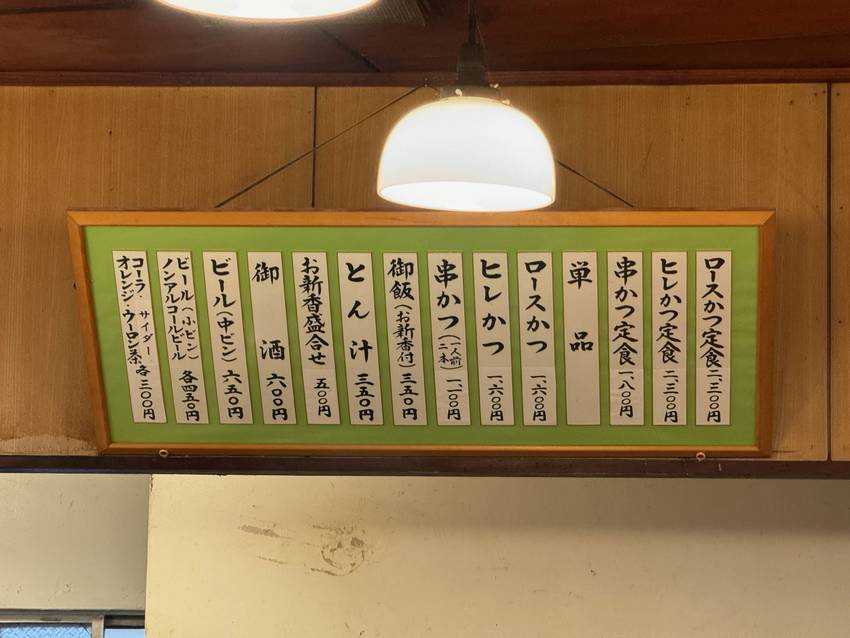 ロースかつ定食 二、三〇〇円
ヒレかつ定食 二、三〇〇円
串かつ定食 一、八〇〇円
単品
ロースかつ 一、六〇〇円
ヒレかつ 一、六〇〇円
串かつ(一人前二本) 一、一〇〇円
御飯(お新香付) 三五〇円
とん汁 三五〇円
お新香盛合せ 五〇〇円
御酒 六〇〇円
ビール(中ビン) 六五〇円
ビール(小ビン)
ノンアルコールビール 各四五〇円
コーラ・サイダー
オレンジ・ウーロン茶 各三〇〇円